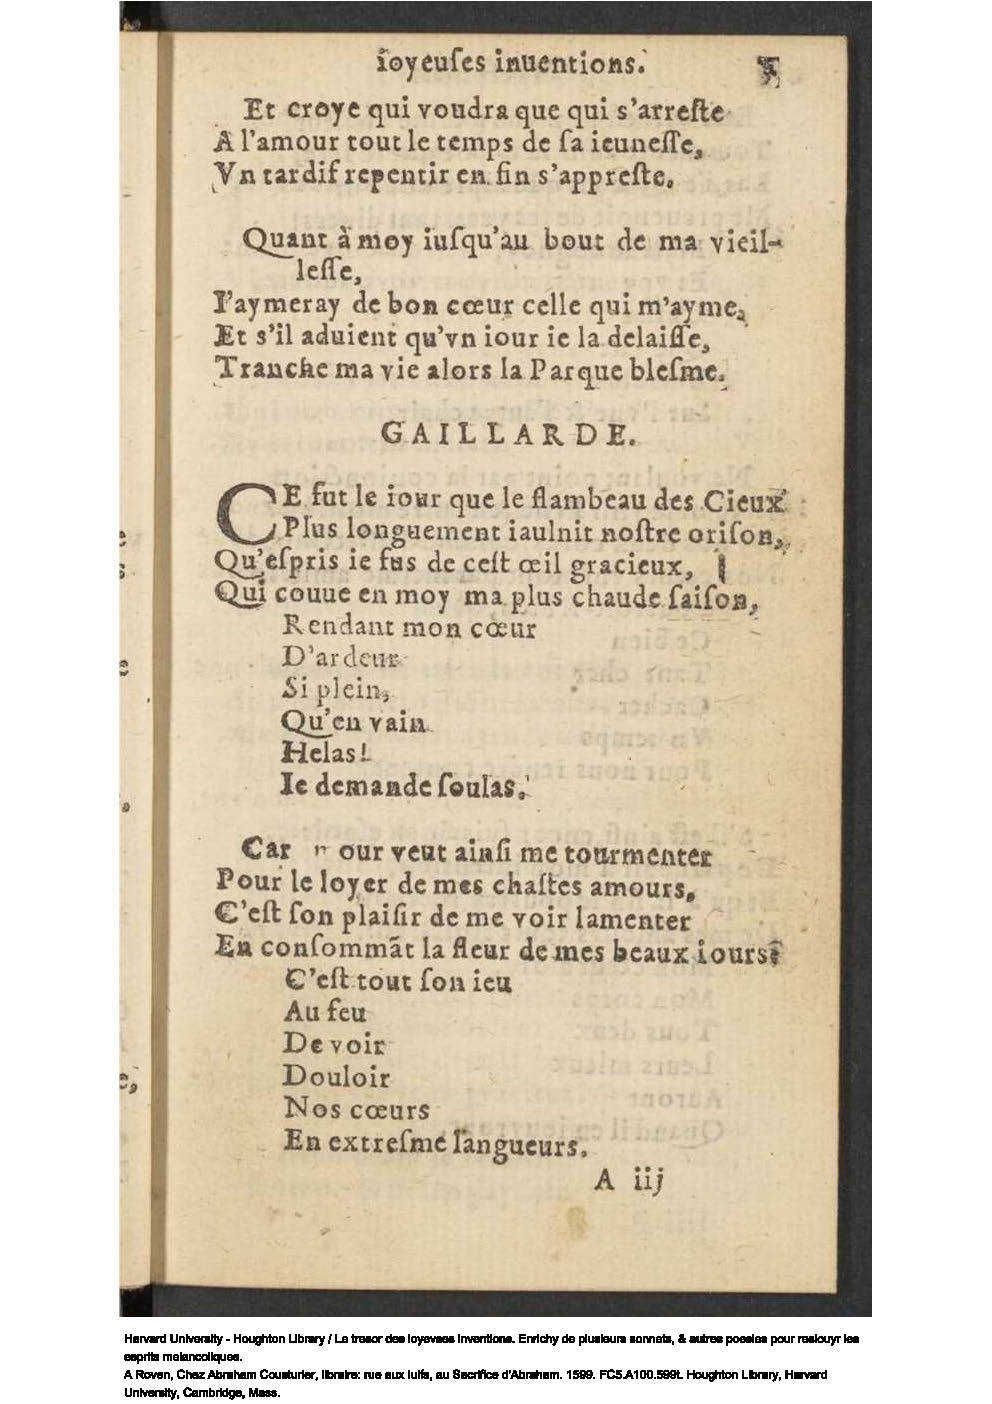 ioyeuſes inuentions. 5
Et croye qui voudra que qui s'arreſte
A l'amour tout le temps de ſa ieuneſſe,
Vn tardif repentir en fin s'appreſte.
Quant à moy iuſqu'au bout de ma vieil-
leſſe,
I'aymeray de bon cœur celle qui m'ayme,
Et s'il aduient qu'vn iour ie la delaiſſe,
Tranche ma vie alors la Parque bleſme.
GAILLARDE.
CE fut le iour que le flambeau des Cieux
Plus longuement iaulnit noſtre oriſon,
Qu'eſpris ie fus de ceſt œil gracieux,
Qui couue en moy ma plus chaude ſaiſon,
Rendant mon cœur
D'ardeur
Si plein,
Qu'en vain
Helas!
Ie demande ſoulas.
Car our veut ainſi me tourmenter
Pour le loyer de mes chaſtes amours,
C'eſt ſon plaiſir de me voir lamenter
En conſommãt la fleur de mes beaux iours:
C'eſt tout ſon ieu
Au feu
De voir
Douloir
Nos cœurs
En extreſme langueurs.
A iij
Harvard University - Houghton Library / Le tresor des ioyevses inventions. Enrichy de plusieurs sonnets, & autres poesies pour resiouyr les
esprits melancoliques.
A Roven, Chez Abraham Cousturier, libraire: rue aux Iuifs, au Sacrifice d'Abraham. 1599. FC5.A100.599t. Houghton Library, Harvard
University, Cambridge, Mass.